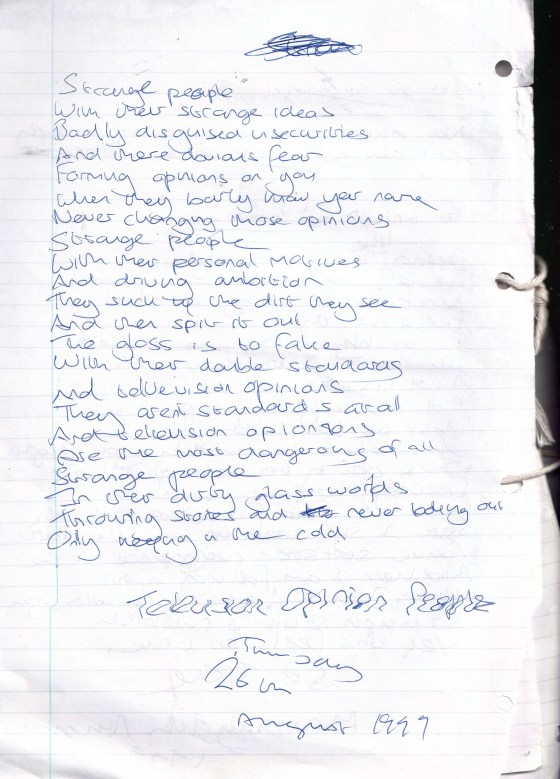 Strange people
With their strange ideas
Badly disguised insecurities
And there obvious fear
Forming opinions on you
When they barly know your name
Never changing those opinions
Strange people
With their personal motives
And driving ambition
They suck up the dirt they see
And then spit it out
The gloss is to fake
With their double standards
And television opinions
They arent standards atall
And television opionions
Are the most dangerous of all
Strange people
In their dirty glass worlds
Throwing stones and never looking out
Only in the cold
Television Opinion People
Thursday
26th
August 1999